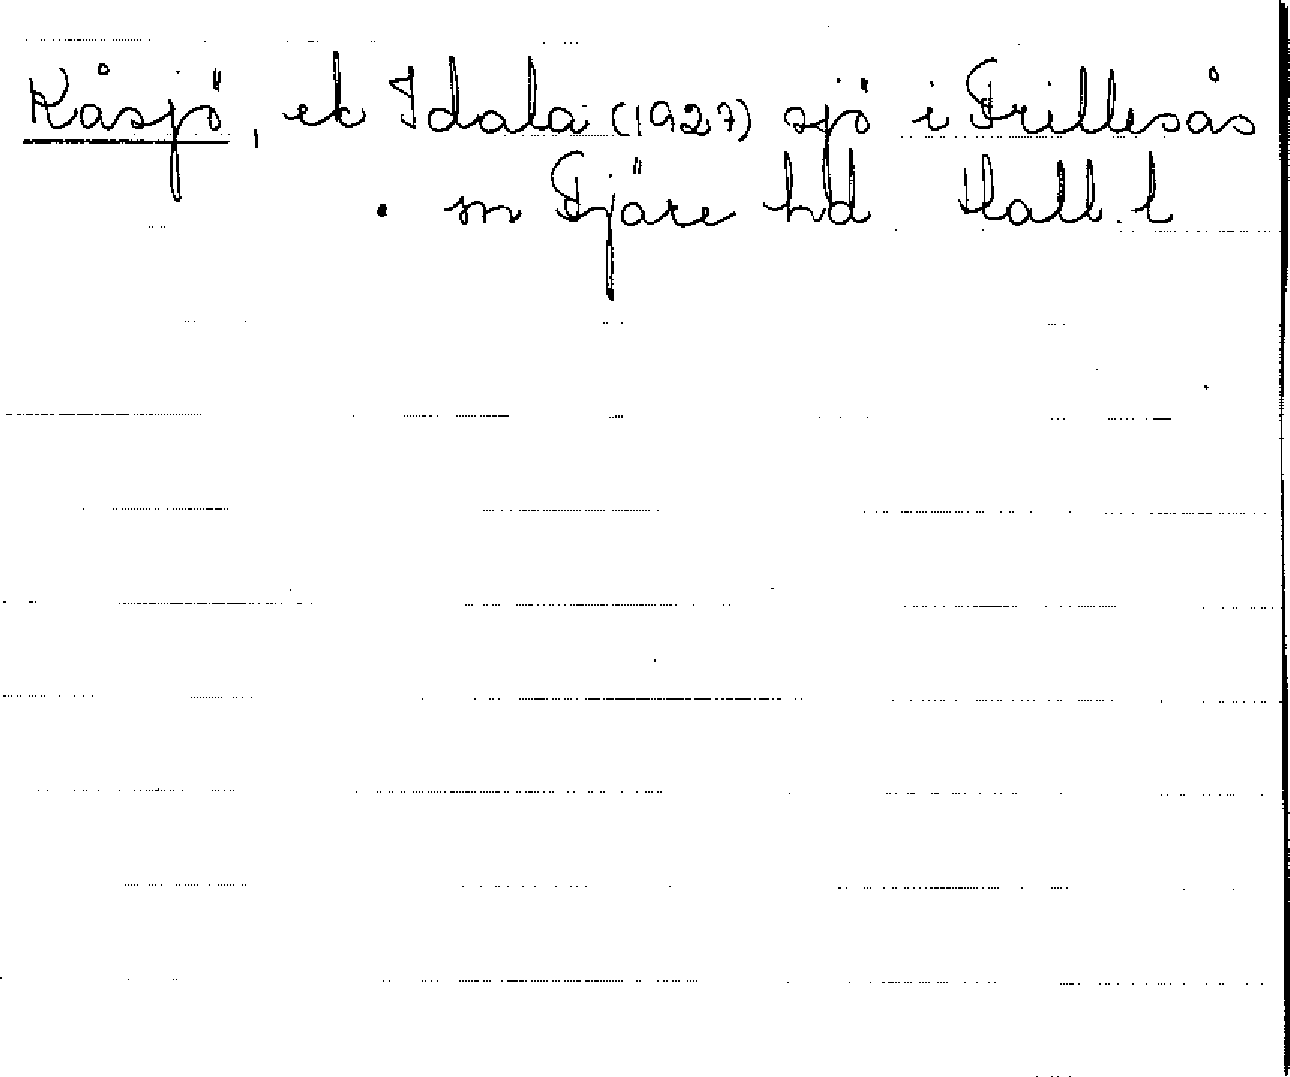 Kåsjö, ek Idala (1927) sjö i Frillesås
sn Fjäre hd Hall. l